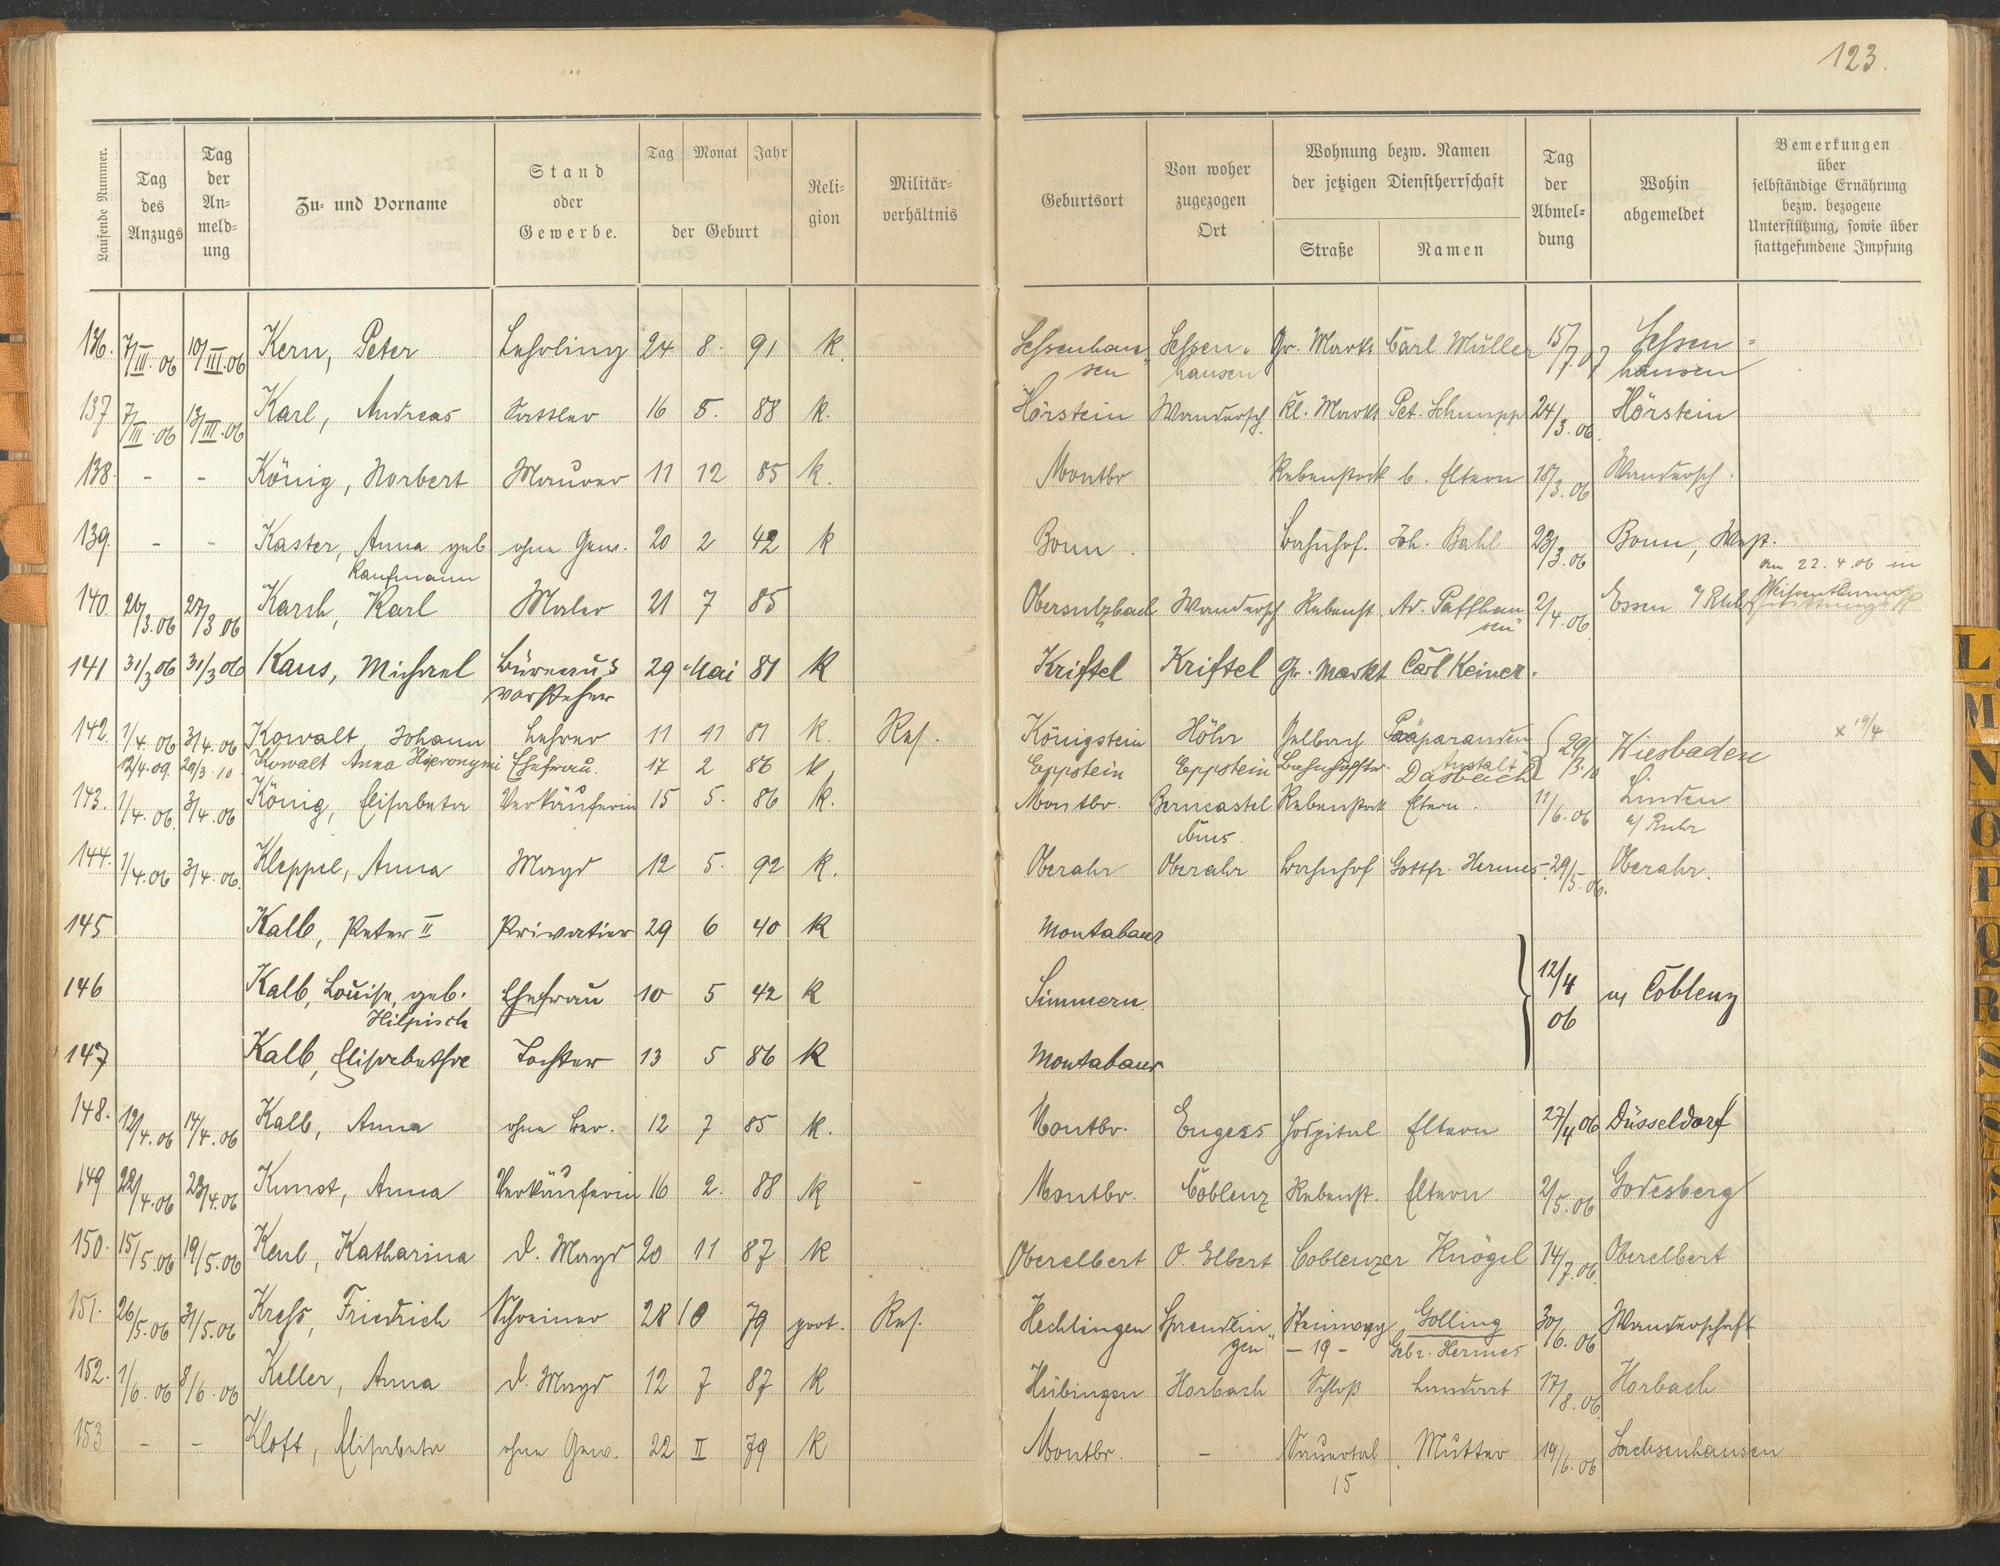 123.
Laufende Nummer. Tag des Anzugs Tag der An- meld- ung Zu- und Vorname Stand oder Gewerbe. Tag Monat Jahr der Geburt Reli- gion Militär- verhältnis
Geburtsort Von woher zugezogen Ort Wohnung bezw. Namen der jetzigen Dienstherrschaft Straße Namen Tag der Abmel- dung Wohin abgemeldet Bemerkungen über selbständige Ernährung bezw. bezogene Unterstützung, sowie über stattgefundene Impfung
136. 7/III. 06 10/III. 06 Kern, Peter Lehrling 24 8. 91 k. Gr. Markt Carl Müller 15/7. 07
137 7/III. 06 13/III. 06 Karl, Andreas Sattler 16 5. 88 k. Hörstein Wandersch. Kl. Markt Pet. Schnupp 24/3. 06. Hörstein
138. - - König, Norbert Maurer 11 12 85 k. Montbr Rebenstock b. Eltern 18/3. 06 Wandersch.
139. - - Kaster, Anna geb. Kaufmann ohne Gew. 20 2 42 k Bonn. Bahnhof. Joh. Bahl 23/3. 06 Bonn,
140. 26/3. 06 27/3 06 Karl Maler 21 7 85 Obersulzbach Wandersch Rebenst. Ad. Paffhausen 2/4. 06. Essen a/Ruhr am 22. 4. 06 in
141 31/3 06 31/3 06 Kaus, Michael Büreauvorsteher 29 Mai 81 k Kriftel Kriftel Gr. Markt Carl Keiner.
142. 1/4. 06 3/4. 06 Kowalt, Johann Lehrer 11 11 81 k. Res. Königstein Höhr Gelbach Präparanden Anstalt 29/3. 10 Wiesbaden x 19/4
12/4. 09. 29/3. 10. Kowalt Anna Hieronymi Ehefrau. 17 2 86 k. Eppstein Eppstein Bahnhofstr. Dasbach
143. 1/4. 06. 3/4. 06 König, Elisabeta Verkäuferin 15 5. 86 k. Montbr. Berncastel Cues. Rebenstock Eltern. 11/6. 06 Linden a/Ruhr
144. 1/4. 06 3/4. 06. Kleppel, Anna Magd 12 5. 92 k. Oberahr Oberahr Bahnhof Gottfr. Hermes 29/5. 06. Oberahr.
145 Kalb, Peter II Privatier 29 6 40 k Montabaur
146 Kalb, Louise, geb. Hilpisch Ehefrau 10 5 42 k Simmern 12/4 06 n/ Coblenz
147 Kalb, Elisabethe Tochter 13 5 86 k Montabaur
148. 12/4. 06 14/4. 06 Kalb, Anna ohne Ber. 12 7 85 k. Montbr. Engers Hospital Eltern 27/4 06 Düsseldorf
149 22/4. 06 23/4. 06 Kunst, Anna Verkäuferin 16 2. 88 k Montbr. Coblenz Rebenst. Eltern 2/5. 06 Godesberg
150. 15/5. 06 19/5. 06 Keul, Katharina d. Magd 20 11 87 k Oberelbert O. Elbert Coblenzer Knögel 14/7. 06. Oberelbert
151. 26/5. 06 31/5. 06 Kreß, Friedrich Schreiner 28 10 79 prot. Res. Hechlingen Sprendlingen Steinweg - 19 - Golling Gebr. Hermes 30/6. 06 Wanderschaft
152. 1/6. 06 8/6. 06 Keller, Anna d. Magd 12 7 87 k Hübingen Horbach Schloß Landrat 17/8. 06. Horbach
153 - - Kloft, Elisabeta ohne Gew. 22 II 79 k Montbr. - Sauertal 15 Mutter 19/6. 06 Sachsenhausen
L M N O P Q R S